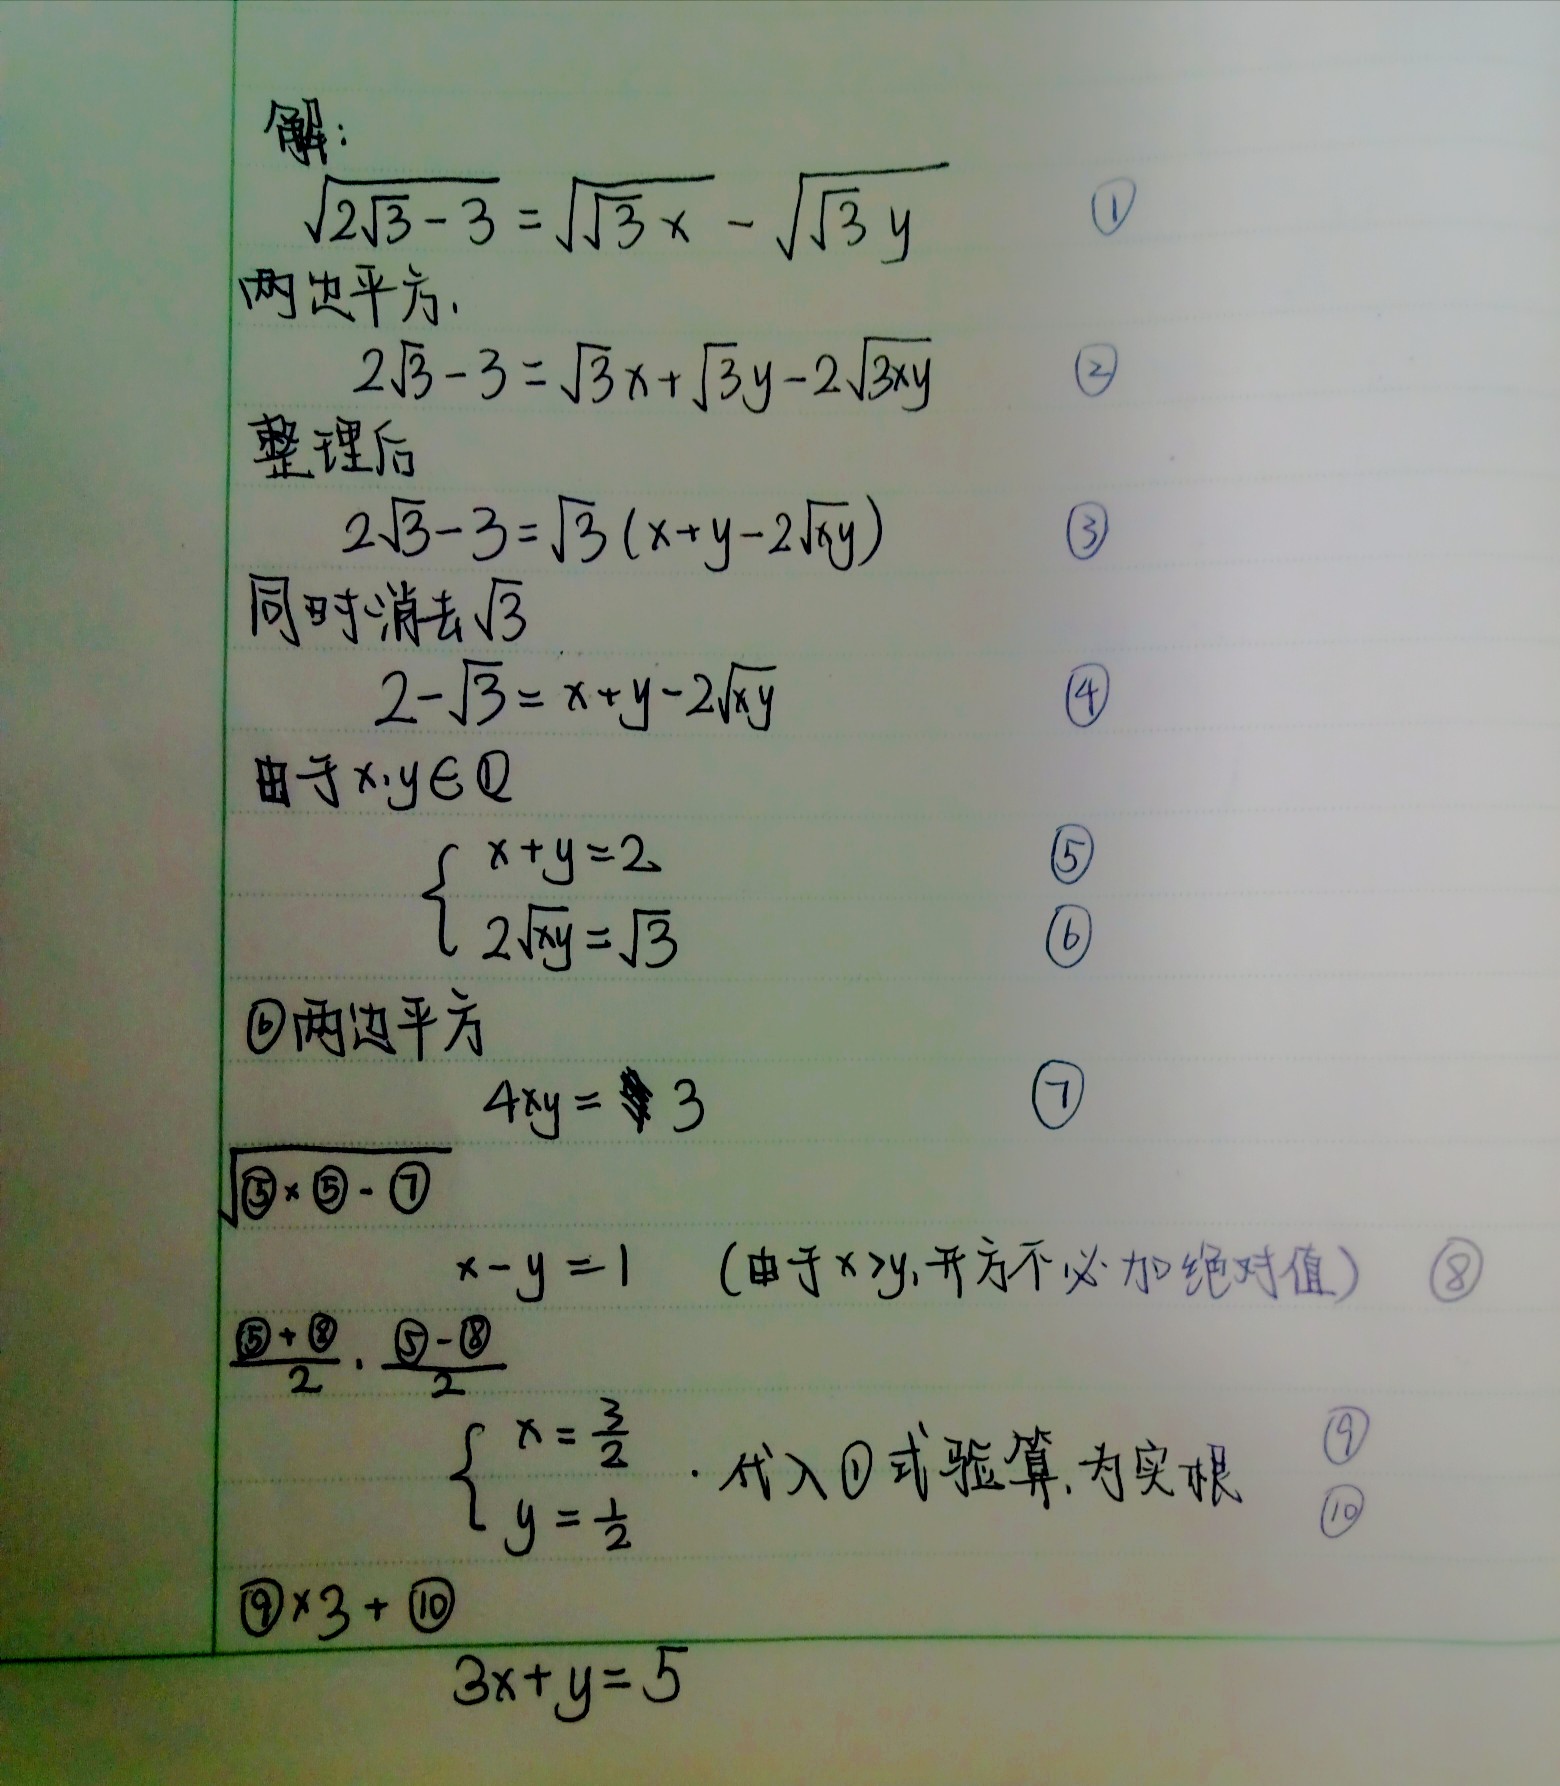 解:
√(2√3-3) = √(√3x) - √(√3y) ①
两边平方,
2√3-3=√3x+√3y-2√(3xy) ②
整理后
2√3-3=√3(x+y-2√(xy)) ③
同时消去√3
2-√3=x+y-2√(xy) ④
由于x,y∈Q
{ x+y=2 ⑤
2√(xy)=√3 ⑥
⑥两边平方
4xy=3 ⑦
√(⑤×⑤-⑦)
x-y=1 (由于x>y,开方不必加绝对值) ⑧
(⑤+⑧)/2, (⑤-⑧)/2
{ x=3/2 ⑨
y=1/2 ⑩
,代入①式验算,为实根
⑨×3+⑩
3x+y=5